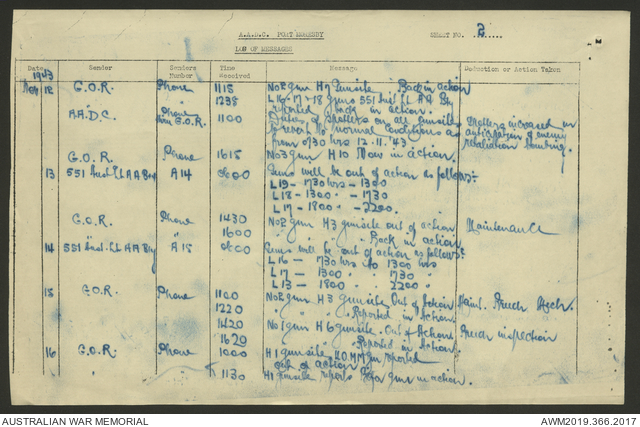 A.A.D.C. PORT MORESBY SHEET NO. 2
LOG OF MESSAGES
Date Sender Senders Number Time Received Message Deduction or Action Taken
1943
12 G.O.R. Phone 1115 No 2 gun H7 Gunsite Back in action
1235 L16-17-18 Guns 551 Aust Lt. A A Bty
reported back in action.
A.A.D.C. Phone from G.O.R. 1100 Duties of Spotters on all gunsites Spotters increased in
to revert to normal conditions as anticipation of enemy
from 0730 hrs 12.11.'43 retaliation bombing.
G.O.R. Phone 1615 No 3 gun H10 Now in action.
13 551 Aust Lt A A Bty A14 0800 Guns will be out of action as follows:-
L19 - 1730 hrs - 1300
L18 - 1300 - 1730
L17 - 1800 - 2200.
G.O.R. Phone 1430 No 2 gun H3 gunsite out of action Maintenance
1600 " " " Back in action
14 551 Aust. Lt A A Bty A15 0800 Guns will be out of action as follows:-
L16 - 730 hrs to 1300 hrs
L17 - 1300 " 1730 "
L13 - 1800 " 2200 "
15 G.O.R. Phone 1100 No 2 gun H3 gunsite Out of Action Maint. Breech Mech.
1220 " " " Reported in Action
1420 No 1 gun H6 gunsite Out of Action Breech inspection
1620 " " Reported in Action.
16 G.O.R. Phone 1000 H1 gunsite 40MM gun reported
out of action
" " 1130 H1 gunsite reports gun in action.
AUSTRALIAN WAR MEMORIAL AWM2019.366.2017